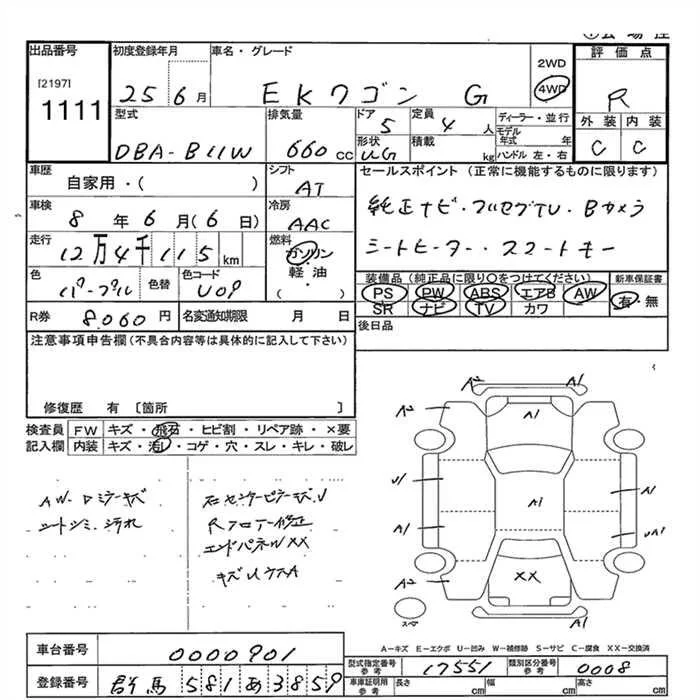 出品番号 初度登録年月 車名・グレード 2WD 4WD 評価点
[2197]
1111
25 6月 EKワゴン G R
型式 排気量 ドア 定員 ディーラー・並行 外装 内装
DBA-B11W 660cc 5 4人 モデル年式 年 C C
形状 積載 kg ハンドル 左・右
車歴 シフト セールスポイント(正常に機能するものに限ります)
自家用・( ) AT
純正ナビ・フルセグTV・Bカメラ
車検 冷房
8年6月(6日) AAC
シートヒーター・スマートキー
走行 燃料
12万4千115km ガソリン・軽油・( )
装備品(純正品に限り○をつけてください) 新車保証書
色 色替 色コード
パープル U09
PS PW ABS エアB AW 有・無
SR ナビ TV カワ
R券 8,060円 名変通知期限 月 日
後日品
注意事項申告欄(不具合内容等は具体的に記入して下さい)
修復歴 有 〔箇所 〕
検査員 FW キズ・飛石・ヒビ割・リペア跡・×要
記入欄 内装 キズ・汚れ・コゲ・穴・スレ・キレ・破レ
AW・ドミラーキズ
シートシミ、汚れ
右センターピラーキズ、U
Rフロアー修正
エンドパネルXX
キズUケスA
A2 A1
A1
U1 A1 A1
A1 UA1
A2 XX
スペ A1
A-キズ E-エクボ U-凹み W-補修跡 S-サビ C-腐食 XX-交換済
車台番号 0000901
型式指定番号 参考 17551 類別区分番号 参考 0008
登録番号 群馬 581 あ 3859
車庫証明用 参考 長さ cm 幅 cm 高さ cm